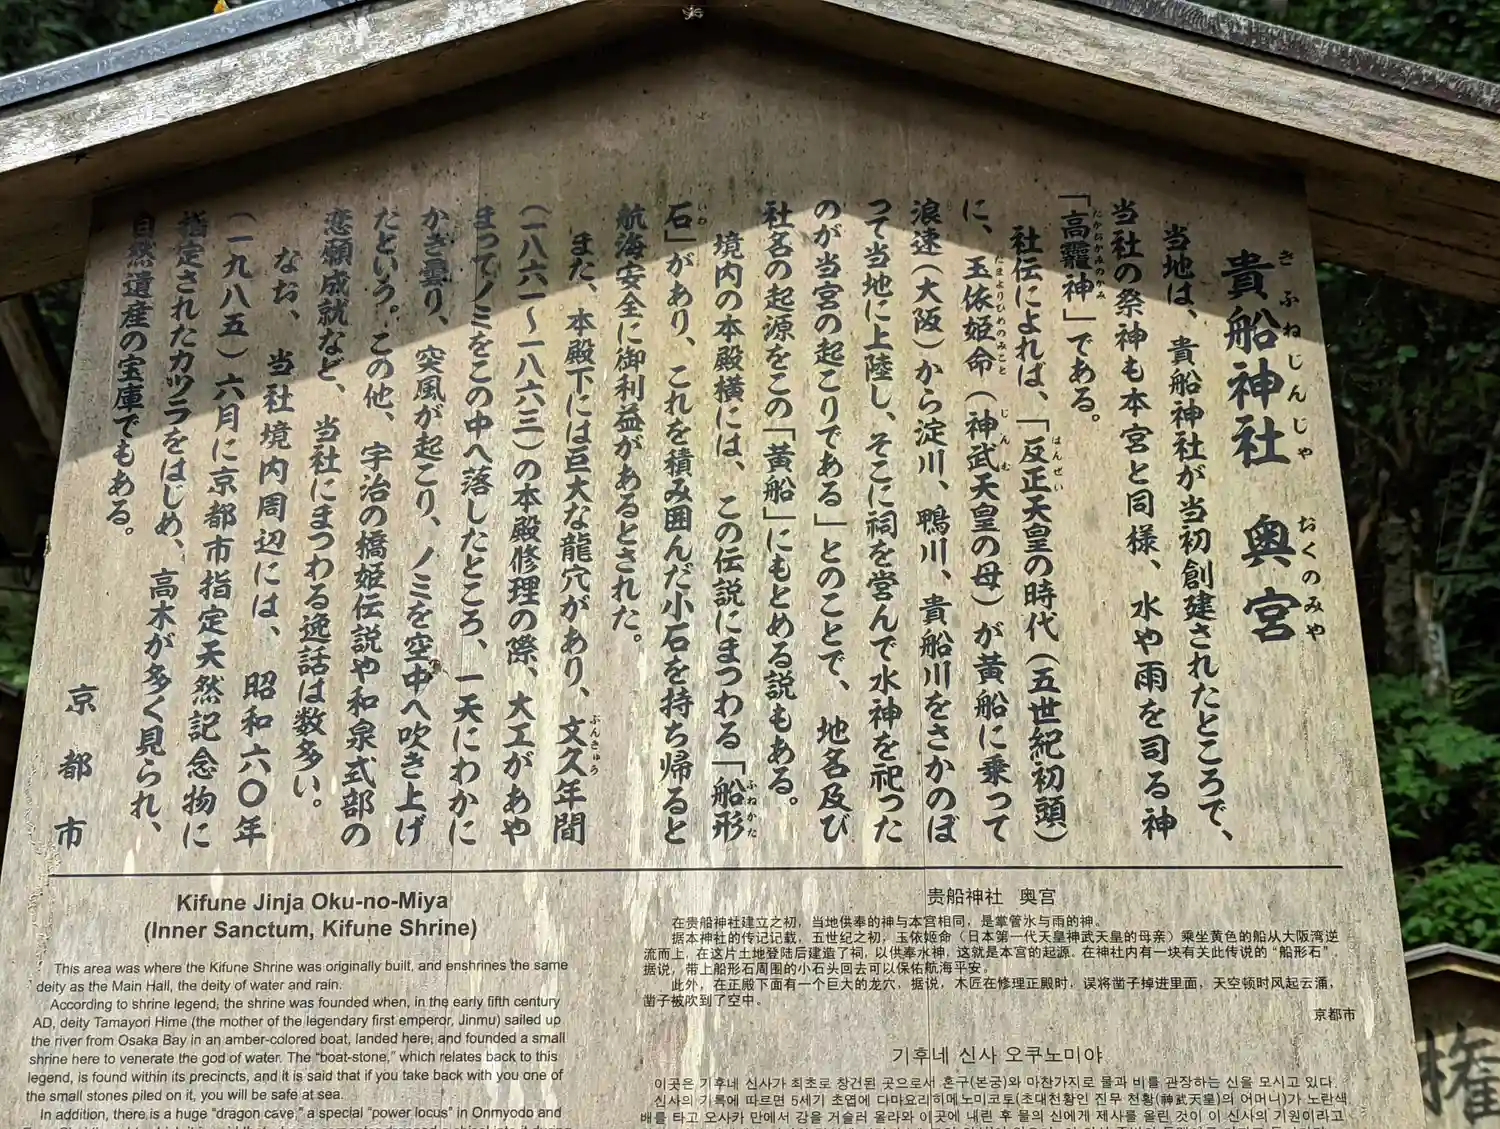 貴船神社 奥宮
きふねじんじゃ おくのみや
当地は、貴船神社が当初創建されたところで、
当社の祭神も本宮と同様、水や雨を司る神
「高龗神」である。
たかおかみのかみ
社伝によれば、「反正天皇の時代(五世紀初頭)
はんぜい
に、玉依姫命(神武天皇の母)が黄船に乗って
たまよりひめのみこと じんむ
浪速(大阪)から淀川、鴨川、貴船川をさかのぼ
って当地に上陸し、そこに祠を営んで水神を祀った
のが当宮の起こりである」とのことで、地名及び
社名の起源をこの「黄船」にもとめる説もある。
境内の本殿横には、この伝説にまつわる「船形
ふねかた
石」があり、これを積み囲んだ小石を持ち帰ると
いわ
航海安全に御利益があるとされた。
また、本殿下には巨大な龍穴があり、文久年間
ぶんきゅう
(一八六一〜一八六三)の本殿修理の際、大工があや
まってノミをこの中へ落したところ、一天にわかに
かき曇り、突風が起こり、ノミを空中へ吹き上げ
たという。この他、宇治の橋姫伝説や和泉式部の
恋願成就など、当社にまつわる逸話は数多い。
なお、当社境内周辺には、昭和六〇年
(一九八五)六月に京都市指定天然記念物に
指定されたカツラをはじめ、高木が多く見られ、
自然遺産の宝庫でもある。
京都市
Kifune Jinja Oku-no-Miya
(Inner Sanctum, Kifune Shrine)
This area was where the Kifune Shrine was originally built, and enshrines the same
deity as the Main Hall, the deity of water and rain.
According to shrine legend, the shrine was founded when, in the early fifth century
AD, deity Tamayori Hime (the mother of the legendary first emperor, Jinmu) sailed up
the river from Osaka Bay in an amber-colored boat, landed here, and founded a small
shrine here to venerate the god of water. The "boat-stone," which relates back to this
legend, is found within its precincts, and it is said that if you take back with you one of
the small stones piled on it, you will be safe at sea.
In addition, there is a huge "dragon cave," a special "power locus" in Onmyodo and
贵船神社 奥宫
在贵船神社建立之初，当地供奉的神与本宫相同，是掌管水与雨的神。
据本神社的传记记载，五世纪之初，玉依姬命（日本第一代天皇神武天皇的母亲）乘坐黄色的船从大阪湾逆
流而上，在这片土地登陆后建造了祠，以供奉水神，这就是本宫的起源。在神社内有一块有关此传说的“船形石”，
据说，带上船形石周围的小石头回去可以保佑航海平安。
此外，在正殿下面有一个巨大的龙穴，据说，木匠在修理正殿时，误将凿子掉进里面，天空顿时风起云涌，
凿子被吹到了空中。
京都市
기후네 신사 오쿠노미야
이곳은 기후네 신사가 최초로 창건된 곳으로서 혼구(본궁)와 마찬가지로 물과 비를 관장하는 신을 모시고 있다.
신사의 기록에 따르면 5세기 초엽에 다마요리히메노미코토(초대천황인 진무 천황(神武天皇)의 어머니)가 노란색
배를 타고 오사카 만에서 강을 거슬러 올라와 이곳에 내린 후 물의 신에게 제사를 올린 것이 이 신사의 기원이라고
権